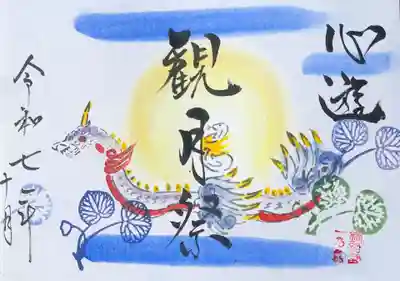 心遊
観月祭
令和七年
十月